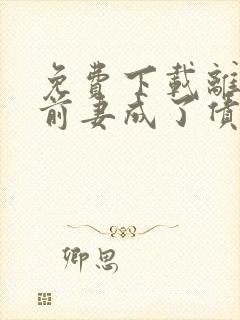 免費下載離
前妻成了債
卿思